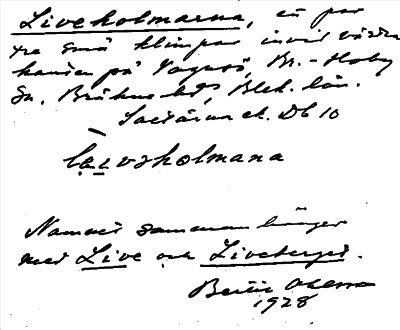 Liveholmarna, en par
tre små klimpar invid västra
kanten på Vagnö, Br.-Hoby
sn, Bräkne hd, Blek. län.
ek. Db 10
holmana
Namnet sammanhänger
med Live och Liveberget.
1928